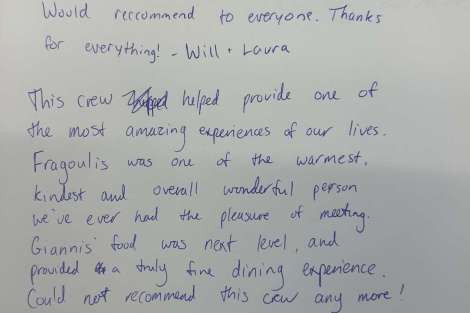 Would reccommend to everyone. Thanks
for everything! - Will + Laura
This crew helped provide one of
the most amazing experiences of our lives.
Fragoulis was one of the warmest,
kindest and overall wonderful person
we've ever had the pleasure of meeting.
Giannis' food was next level, and
provided a truly fine dining experience.
Could not recommend this crew any more!